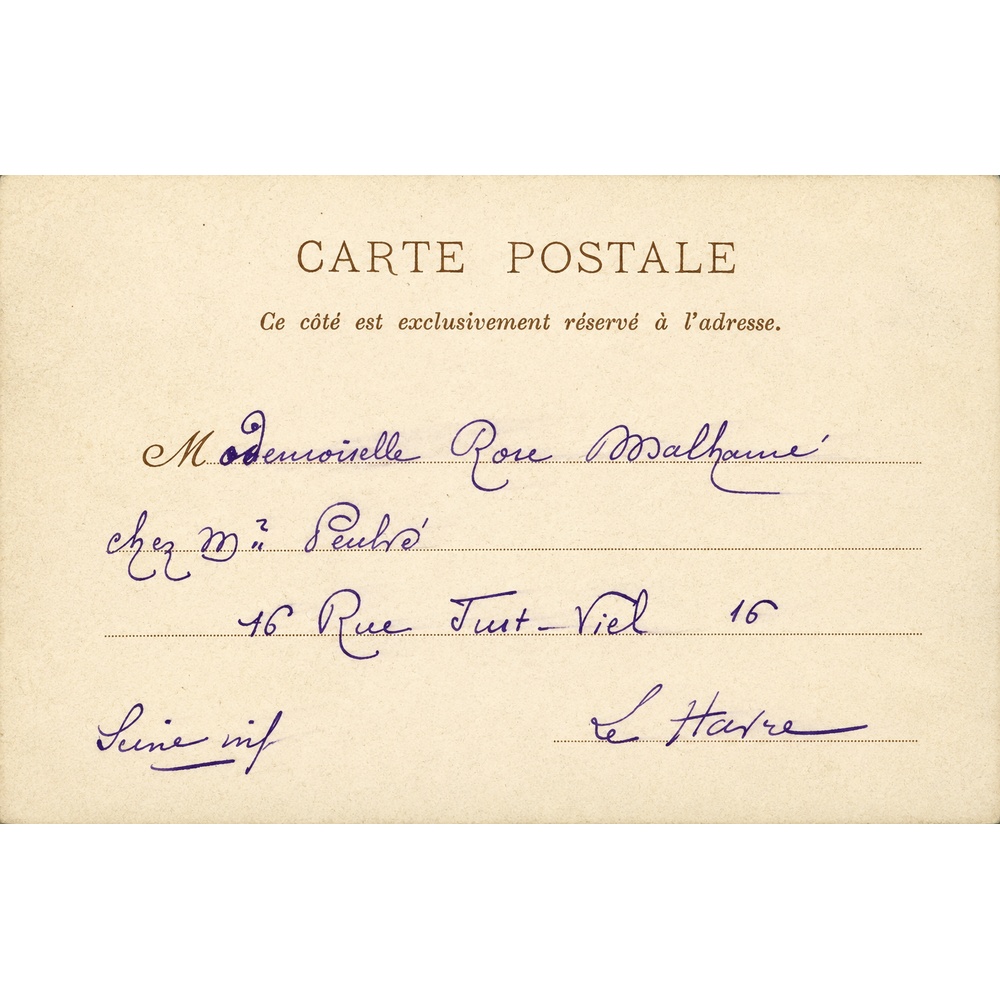 CARTE POSTALE
Ce côté est exclusivement réservé à l'adresse.
Mademoiselle Rose Malhamé
chez Mr
16 Rue Just-Viel 16
Le Havre
Seine inf